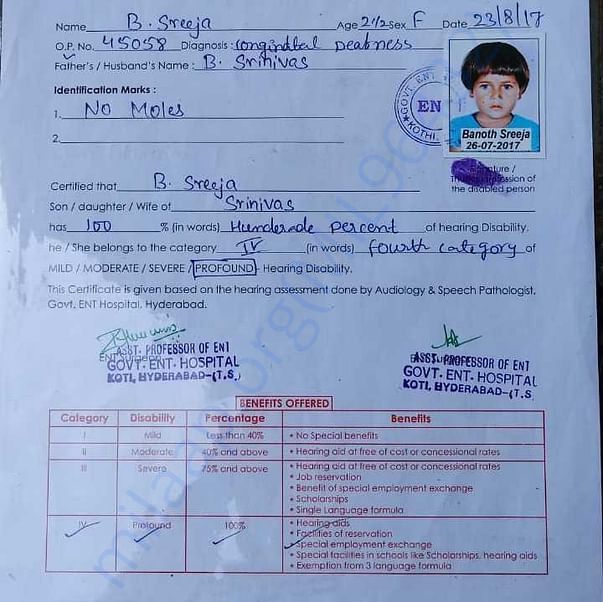 Name B. Sreeja Age 2½ Sex F Date 23/8/17
O.P. No. 45058 Diagnosis: Congindtal Deabness
Father's / Husband's Name : B. Srinivas
Identification Marks :
1. No Moles
2.
GOVT. ENT
ENT
KOTHI
Banoth Sreeja
26-07-2017
Signature /
Thumb impression of
the disabled person
Certified that B. Sreeja
Son / daughter / Wife of Srinivas
has 100 % (in words) Hunderede percent of hearing Disability.
he / She belongs to the category IV (in words) fourth category of
MILD / MODERATE / SEVERE / PROFOUND - Hearing Disability.
This Certificate is given based on the hearing assessment done by Audiology & Speech Pathologist,
Govt, ENT Hospital, Hyderabad.
ENT Surgeon
ASST. PROFESSOR OF ENT
GOVT. ENT. HOSPITAL
KOTI, HYDERABAD-(T.S.)
ASST. PROFESSOR OF ENT
GOVT. ENT. HOSPITAL
KOTI, HYDERABAD-(T.S.
BENEFITS OFFERED
Category Disability Percentage Benefits
I Mild Less than 40% • No Special benefits
II Moderate 40% and above • Hearing aid at free of cost or concessional rates
III Severe 75% and above • Hearing aid at free of cost or concessional rates
• Job reservation
• Benefit of special employment exchange
• Scholarships
• Single Language formula
IV Profound 100% • Hearing aids
• Facilities of reservation
• Special employment exchange
• Special facilities in schools like Scholarships, hearing aids
• Exemption from 3 language formula